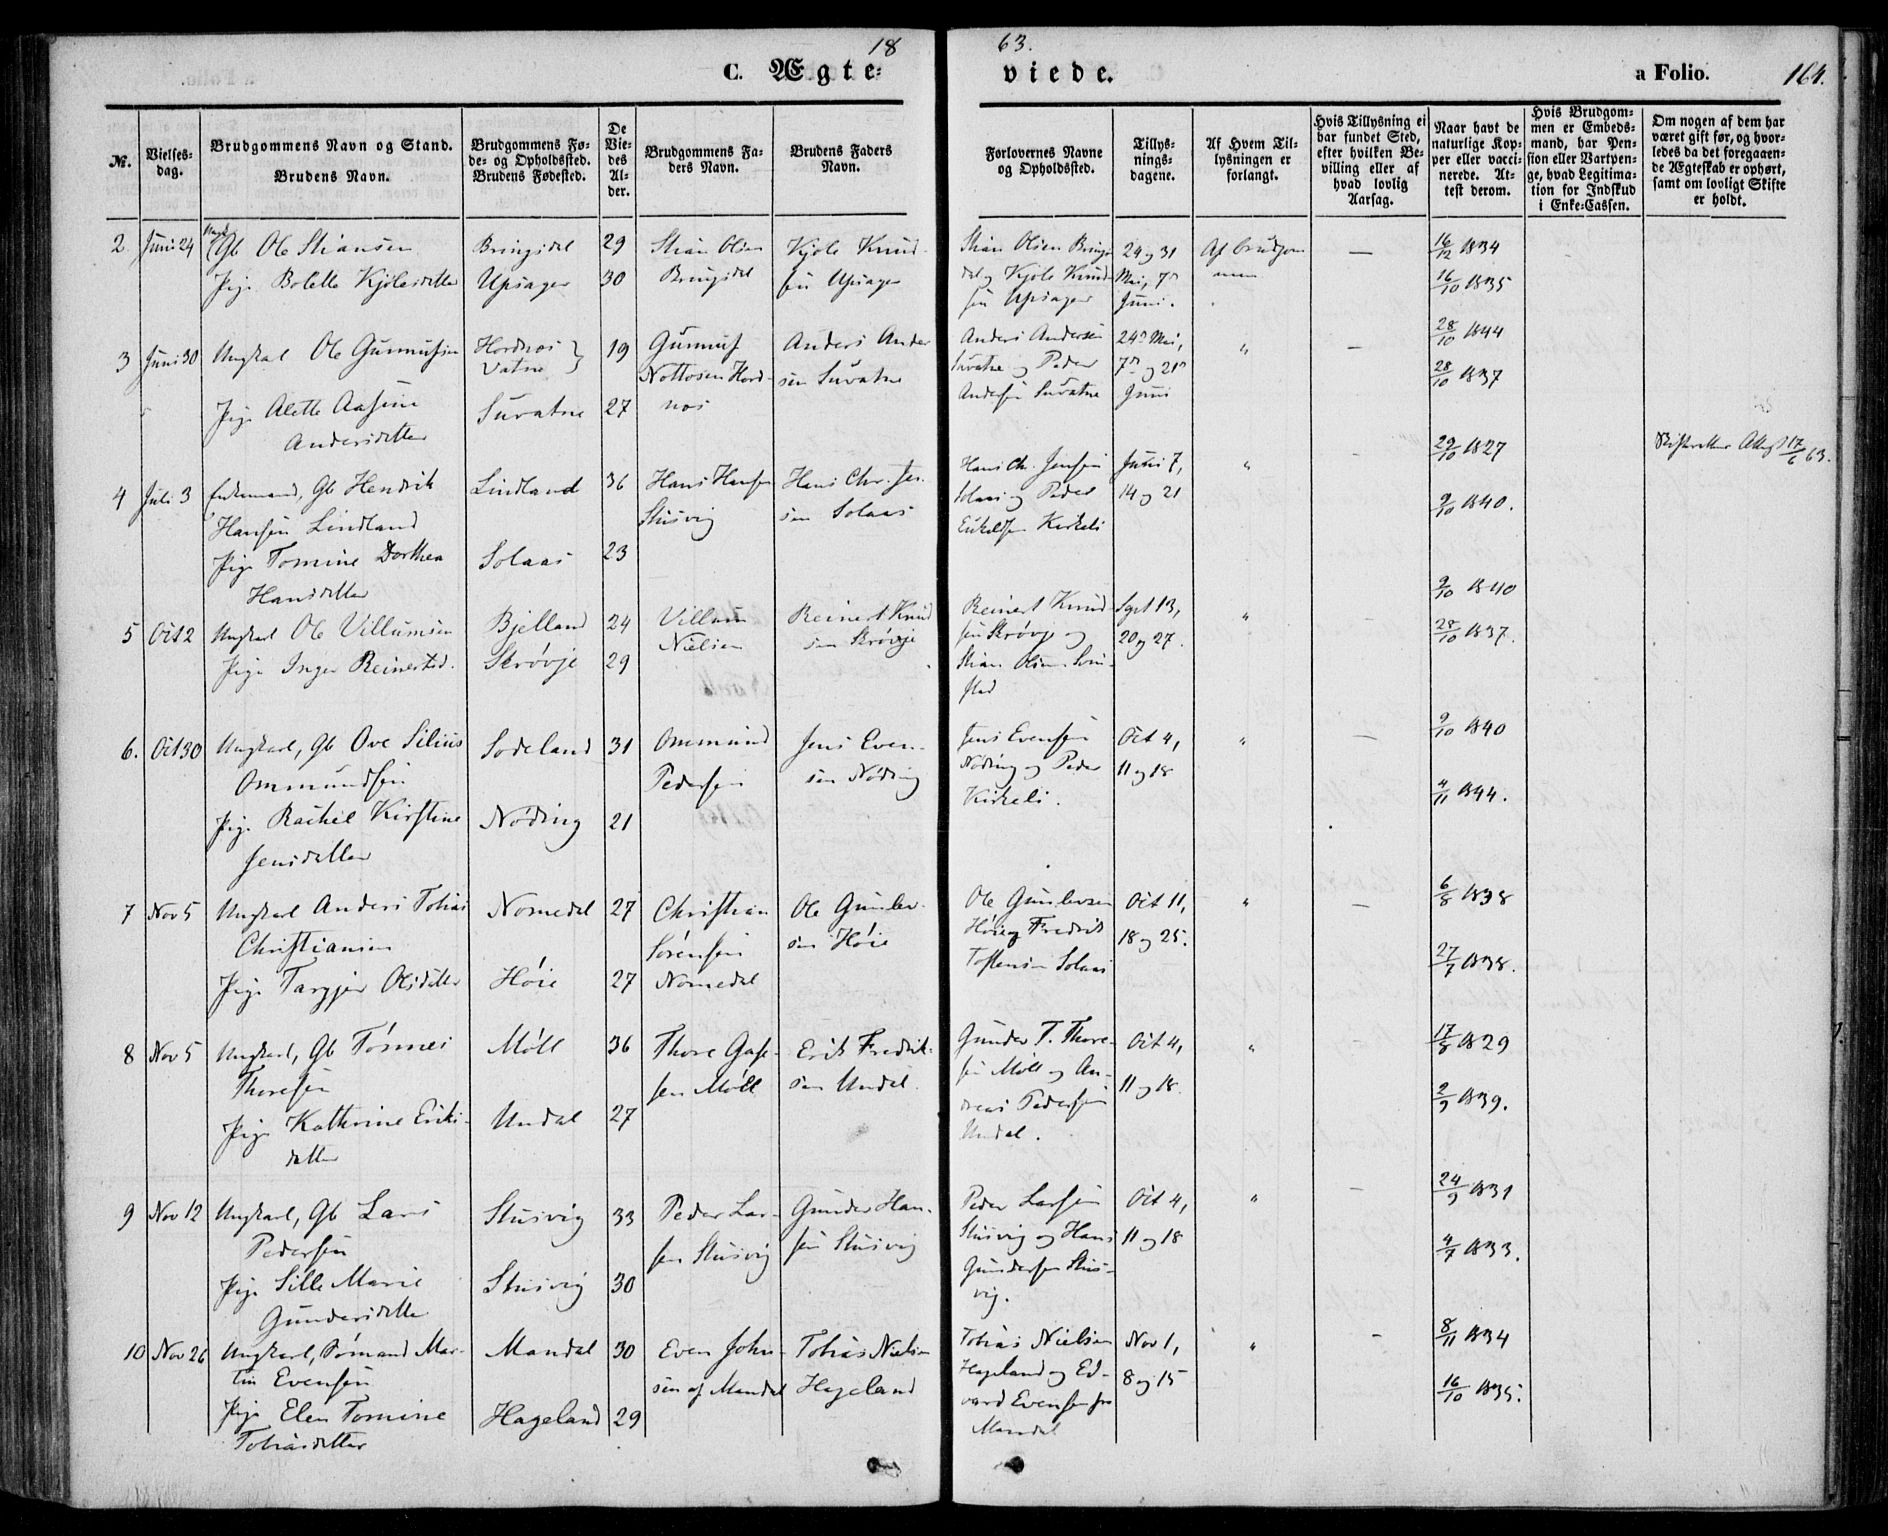 18
63.
C. Ægte-
viede.
a Folio.
164.
№.
Vielses-
dag.
Brudgommens Navn og Stand.
Brudens Navn.
Brudgommens Fø-
de- og Opholdssted.
Brudens Fødested.
De
Vie-
des
Al-
der.
Brudgommens Fa-
ders Navn.
Brudens Faders
Navn.
Forlovernes Navne
og Opholdssted.
Tillys-
nings-
dagene.
Af Hvem Til-
lysningen er
forlangt.
Hvis Tillysning ei
har fundet Sted,
efter hvilken Be-
villing eller af
hvad lovlig
Aarsag.
Naar havt de
naturlige Kop-
per eller vacci-
nerede. At-
test derom.
Hvis Brudgom-
men er Embeds-
mand, har Pen-
sion eller Vartpen-
ge, hvad Legitima-
tion for Indskud
i Enke-Cassen.
Om nogen af dem har
været gift før, og hvor-
ledes da det foregaaen-
de Ægteskab er ophørt,
samt om lovligt Skifte
er holdt.
2. Juni 24 Gb Ole Stiansen Bringsdal 29 Stian Olsen Kjøle Knud- Stian Olsen Brings- 24 og 31 Af Brudgom- — 16/12 1834
Pige Bolette Kjølesdatter Upsager 30 Bringsdal sen Upsager dal og Kjøle Knud- Mai, 7de men 16/10 1835
sen Upsager Juni.
3 Juni 30 Ungkarl Ole Gunnufsen Hordnes Vatne 19 Gunnuf Anders Ander- Anders Andersen 24de Mai, " — 28/10 1844
Nottosen Hord- sen Suvatne Suvatne og Peder 7de og 21de 28/10 1837
Pige Alette Aasine Suvatne 27 nes Andersen Suvatne Juni
Andersdatter
4 Juli 3 Enkemand, Gb Hendrik Lindland 36 Hans Hansen Hans Chr. Jen- Hans Ch. Jensen Juni 7, " 29/10 1827 Skifteretten Attest 17/6 63.
Hansen Lindland Stusvig sen Solaas Solaas og Peder 14 og 21 9/10 1840.
Pige Tomine Dorthea Solaas 23 Kirkeli
Hansdatter
5 Oct 2 Ungkarl Ole Villumsen Bjelland 24 Villum Reinert Knud- Reinert Knud- Sept 13, " 9/10 1840
Pige Inger Reinertsd. Skrövje 29 Nielsen sen Skrövje sen Skrövje og 20 og 27. 28/10 1837.
Stian Olsen
6. Oct 30 Ungkarl, Gb Ove Silius Sodeland 31 Ommund Jens Even- Jens Evensen Oct 4, " — 9/10 1840
Ommundsen Pedersen sen Nöding Nöding og Peder 11 og 18 4/11 1844.
Pige Rachel Kirstine Nöding 21 Kirkeli.
Jensdatter
7 Nov 5 Ungkarl Anders Tobias Nomedal 27 Christian Ole Gunlev- Ole Gunlevsen Oct 11, " — 6/8 1838
Christiansen Sörensen sen Höie Höie og Fredrik 18 og 25. 27/7 1838.
Pige Targjer Olsdatter Höie 27 Nomedal Toftensen Solaas
8 Nov 5 Ungkarl, Gb Tönnes Möll 36 Thore Gase- Erik Fredrik- Gunder T. Thore- Oct 4, " 17/8 1829
Thoresen sen Möll sen Undal. sen Möll og An- 11 og 18. 2/9 1839.
Pige Kathrine Eriks- Undal 27 dreas Pedersen
datter Undal.
9 Nov 12 Ungkarl, Gb Lars Stusvig 33 Peder Lar- Gunder Han- Peder Larsen Oct 4, " — 24/9 1831
Pedersen sen Stusvig sen Stusvig Stusvig og Hans 11 og 18 4/7 1833.
Pige Sille Marie Stusvig 30 Gundersen Stus-
Gundersdatter vig.
10 Nov 26 Ungkarl, Sömand Mar- Mandal 30 Even John- Tobias Nielsen Tobias Nielsen Nov 1, " - 8/11 1834
tin Evensen sen af Mandal Hageland Hageland og Ed- 8 og 15 16/10 1835.
Pige Elen Tomine Hageland 29 vard Evensen fra
Tobiasdatter Mandal